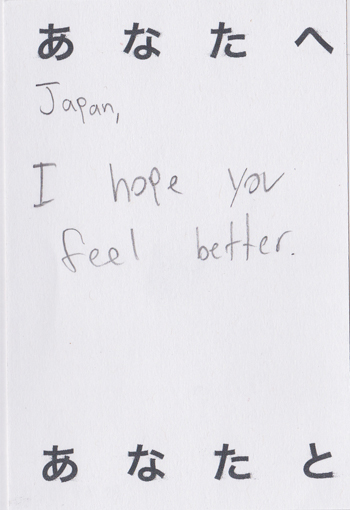 あなたへ
Japan,
I hope you
feel better.
あなたと